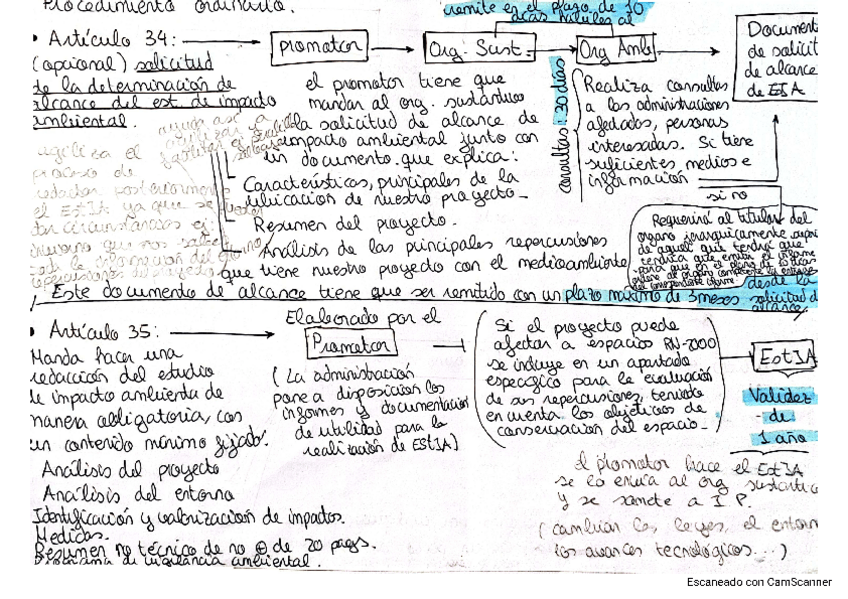 Procedimiento ordinario.
remite en el plazo de 10
días hábiles al
• Artículo 34:
promotor
Org. Sust.
Org Amb
Document
de solicit
de alcance
de EIA
(opcional) solicitud
de la determinación de
alcance del est. de impacto
ambiental.
el promotor tiene que
mandar al org. sustantivo
la solicitud de alcance de
impacto ambiental junto con
un documento que explica:
Características, principales de la
ubicación de nuestro proyecto
Resumen del proyecto.
Análisis de las principales repercusiones
que tiene nuestro proyecto con el medioambiente
consultas: 30 días
Realiza consultas
a las administraciones
afectadas, personas
interesadas. Si tiene
suficientes medios e
información
si no
Requerirá al titular del
órgano jerárquicamente
agiliza el
proceso de
redactar posteriormente
el EstIA ya que se
Este documento de alcance tiene que ser remitido con un plazo máximo de 3 meses
desde la
solicitud d
alcance
• Artículo 35:
Manda hacer una
redacción del estudio
de impacto ambienta de
manera obligatoria, con
un contenido mínimo fijado.
Análisis del proyecto
Análisis del entorno
Identificación y valorización de impactos.
Medidas.
Resumen no técnico de no ⊕ de 20 pags.
Programa de vigilancia ambiental.
Elaborado por el
Promotor
(La administración
pone a disposición los
informes y documentación
de utilidad para la
realización de EstIA)
Si el proyecto puede
afectar a espacios RN-2000
se incluye en un apartado
específico para la evaluación
de sus repercusiones, teniendo
en cuenta los objetivos de
conservación del espacio
EstIA
Validez
de
1 año
El promotor hace el EstIA
se lo envía al org sustantiv
y se somete a I P.
(cambian las leyes, el entorn
los avances tecnológicos...)
Escaneado con CamScanner